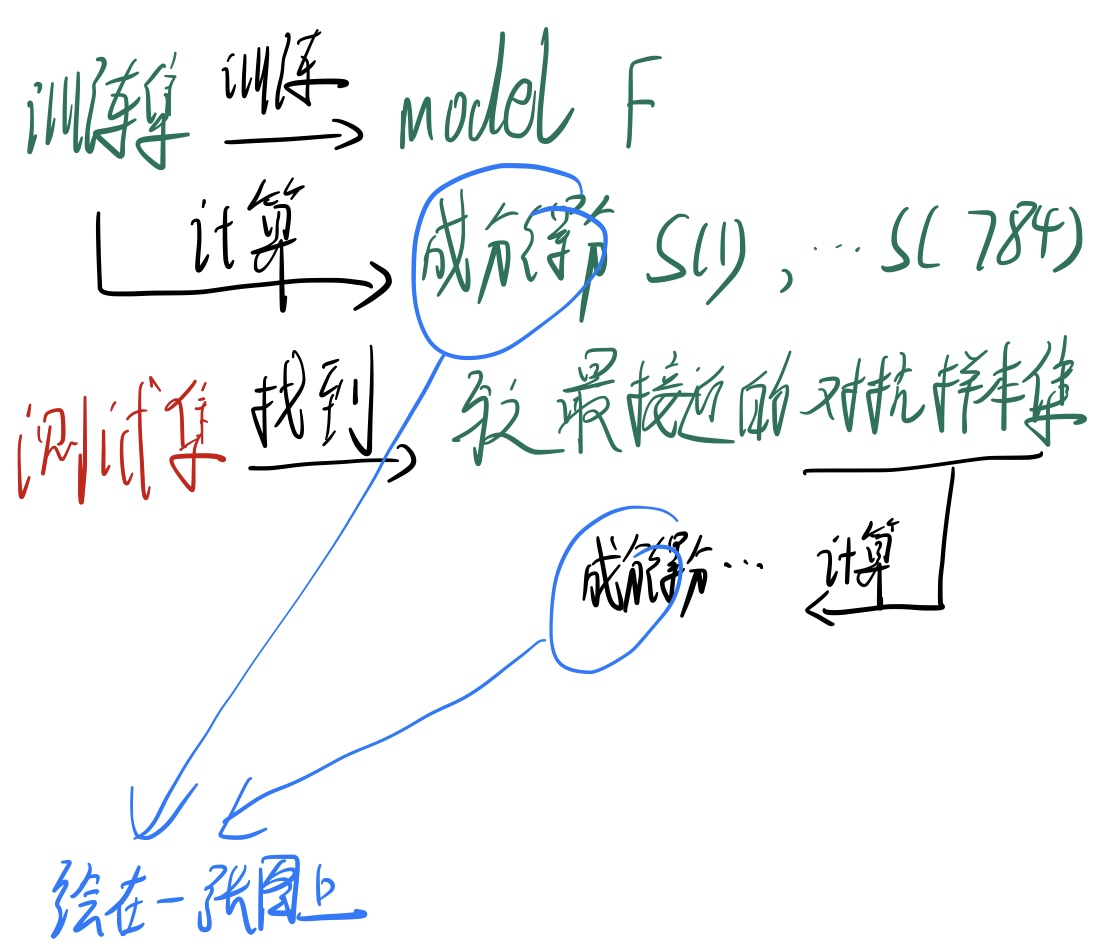 训练集 训练 model F
计算 成分得分 S(1), … S(784)
测试集 找到 较最接近的对抗样本集
成分得分… 计算
绘在一张图上